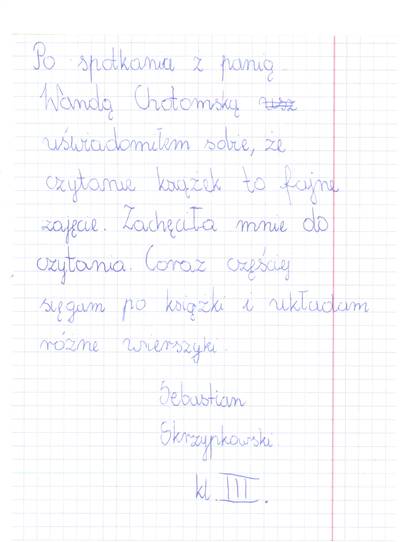 Po spotkania z panią
Wandą Chotomską usz
uświadomiłem sobie, że
czytanie książek to fajne
zajęcie. Zachęciła mnie do
czytania. Coraz częściej
sięgam po książki i układam
różne wierszyki.
Sebastian
Skrzypkowski
kl. III.